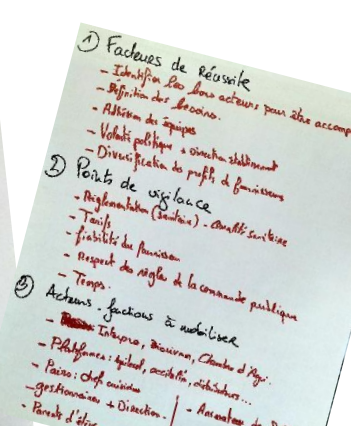 1) Facteurs de Réussite
- Identifier les bons acteurs pour être accomp
- Définition des besoins.
- Adhésion des équipes
- Volonté politique + Direction établissement
- Diversification des profils de fournisseurs
2) Points de vigilance
- Réglementation (sanitaire) - qualité sanitaire
- Tarifs
- fiabilité du fournisseur
- Respect des règles de la commande publique
- Temps.
3) Acteurs - fonctions à mobiliser
- Interpro, Chambre d'Agri.
- Platefformes: occitalin, distributeurs...
- chef cuisinier
- gestionnaires + Direction - | - Animateur
- Parents d'élèves